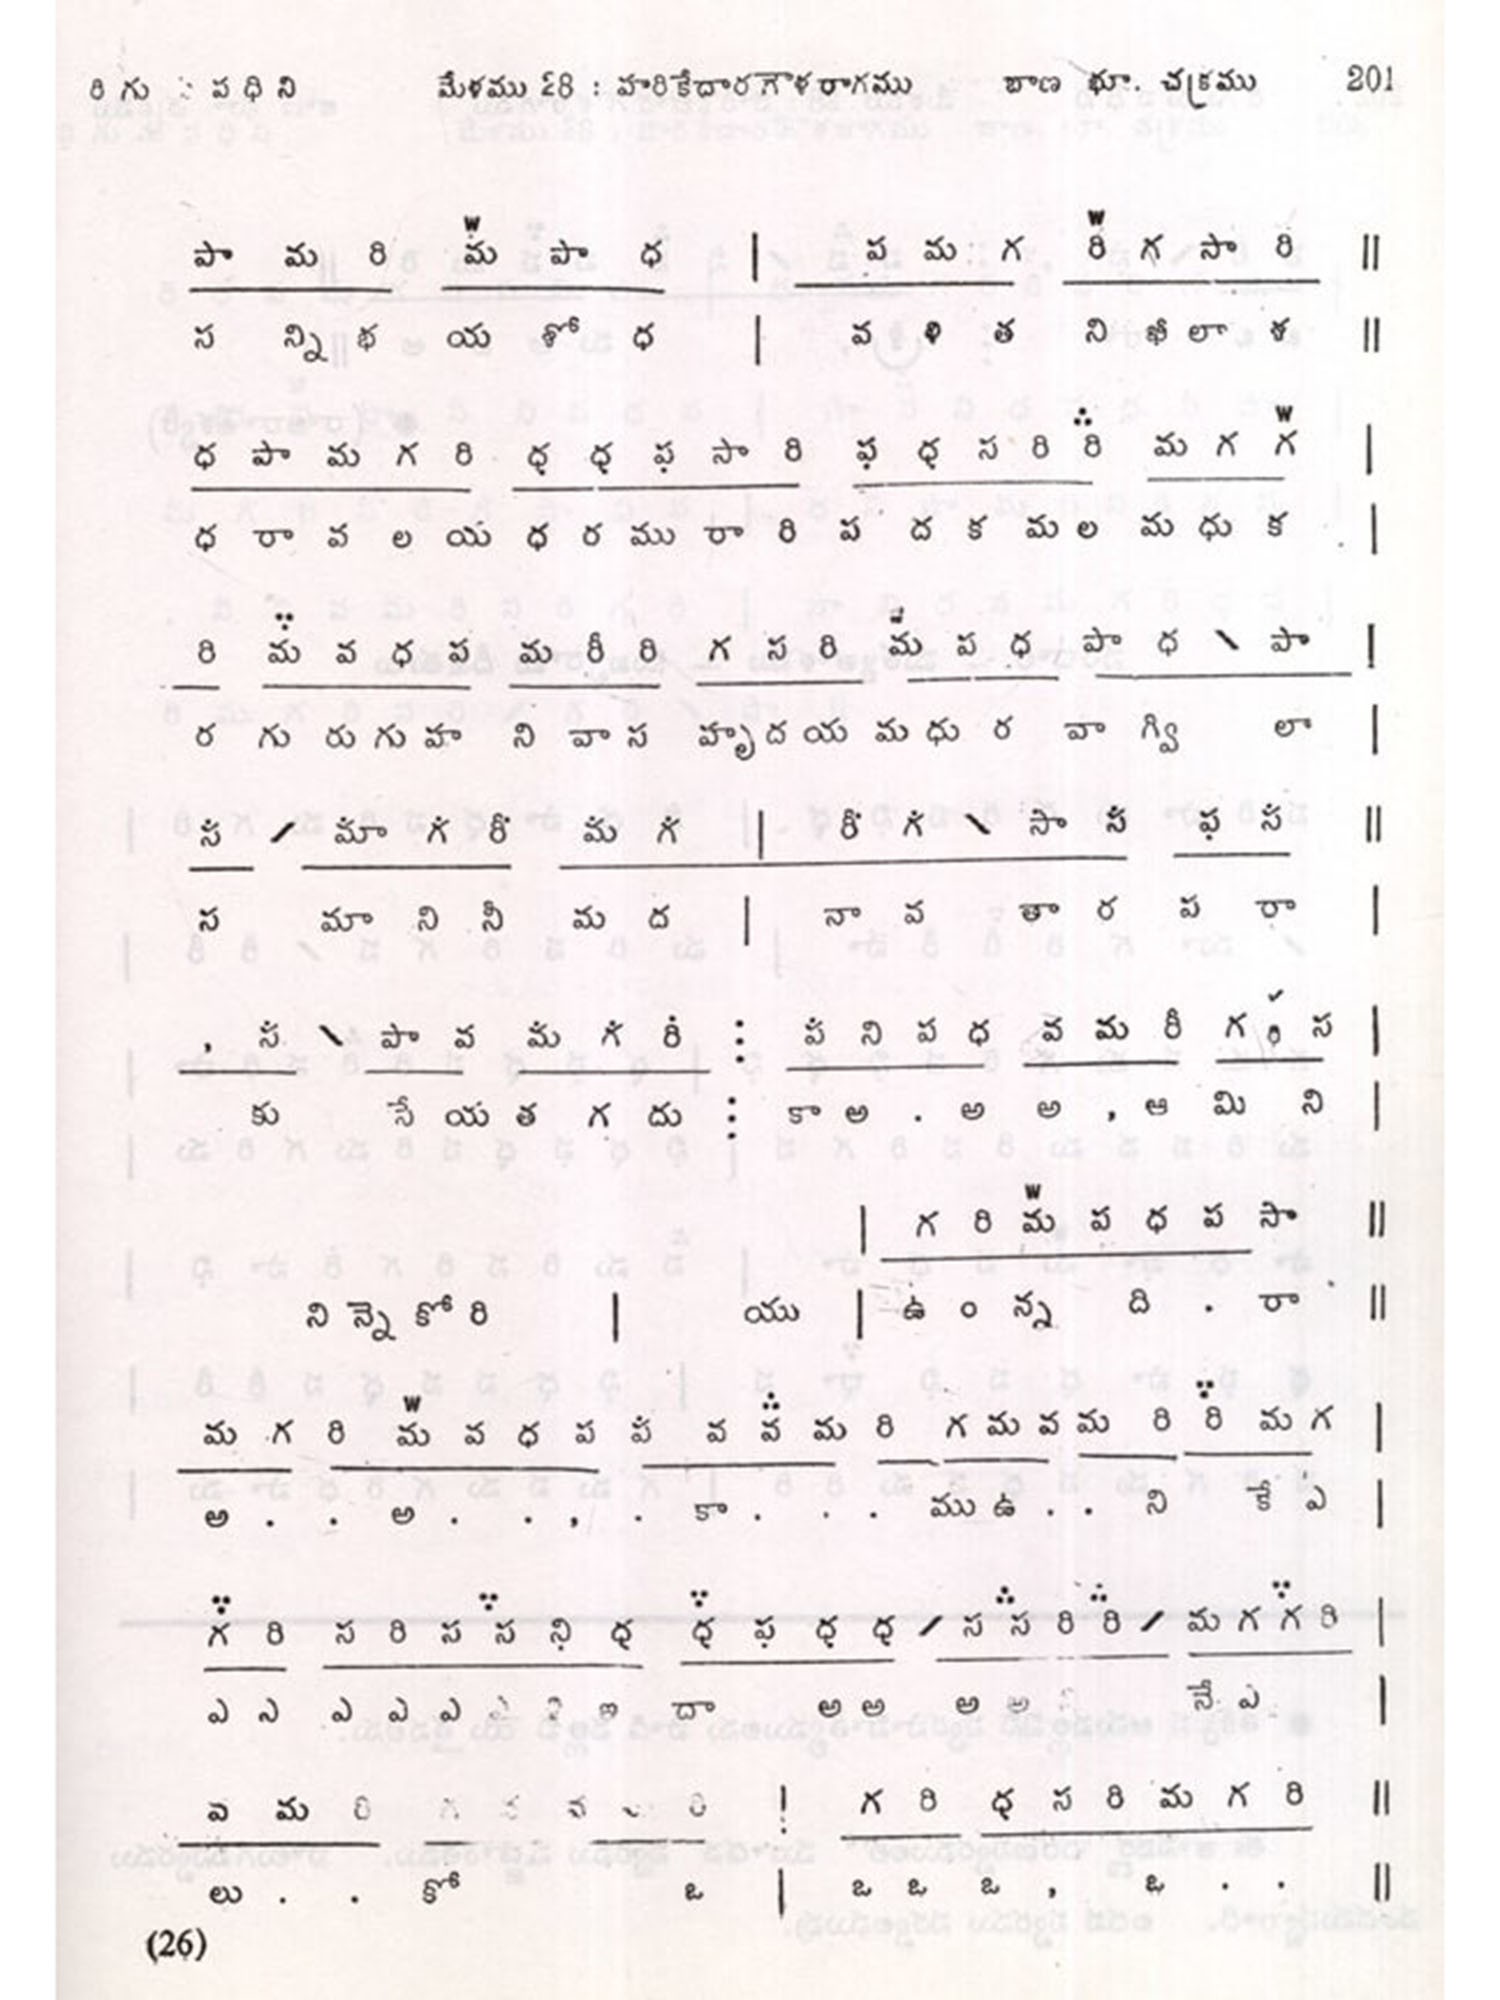 రి గు : ప ధి ని మేళము 28 : హరికేదారగౌళరాగము బాణ భూ. చక్రము 201
పా మ రి మ పా ధ | ప మ గ రి గ సా రి ||
స న్ని భ య శో ధ | వ శి త ని ఖి లా శ ||
ధ పా మ గ రి ధ ధ ప సా రి ప ధ స రి రి మ గ గ |
ధ రా వ ల య ధ ర ము రా రి ప ద క మ ల మ ధు క |
రి మ ప ధ ప మ రీ రి గ స రి మ ప ధ పా ధ \ పా |
ర గు రు గు హ ని వా స హృ ద య మ ధు ర వా గ్వి లా |
స / మా గ రి మ గ | రి గ \ సా స ప స ||
స మా ని నీ మ ద | నా వ తా ర ప రా |
, స \ పా ప మ గ రి ⋮ ప ని ప ధ ప మ రి గ ం స |
కు సే య త గ దు ⋮ కా అ . అ అ , ఆ మి ని |
| గ రి మ ప ధ ప సా ||
ని న్నె కో రి | యు | ఉ ం న్న ది . రా ||
మ గ రి మ ప ధ ప ప ప ప మ రి గ మ ప మ రి రి మ గ |
అ . . అ . . , . కా . . . ము ఉ . . ని కే ఏ |
గ రి స రి స స ని ధ ధ ప ధ ధ / స స రి రి / మ గ గ రి |
ఎ ఎ ఎ ఎ ఎ దా అ అ అ అ నే ఎ |
మ రి | గ రి ధ స రి మ గ రి ||
లు . . కో ఒ | ఒ ఒ ఒ , ఒ . . ||
(26)